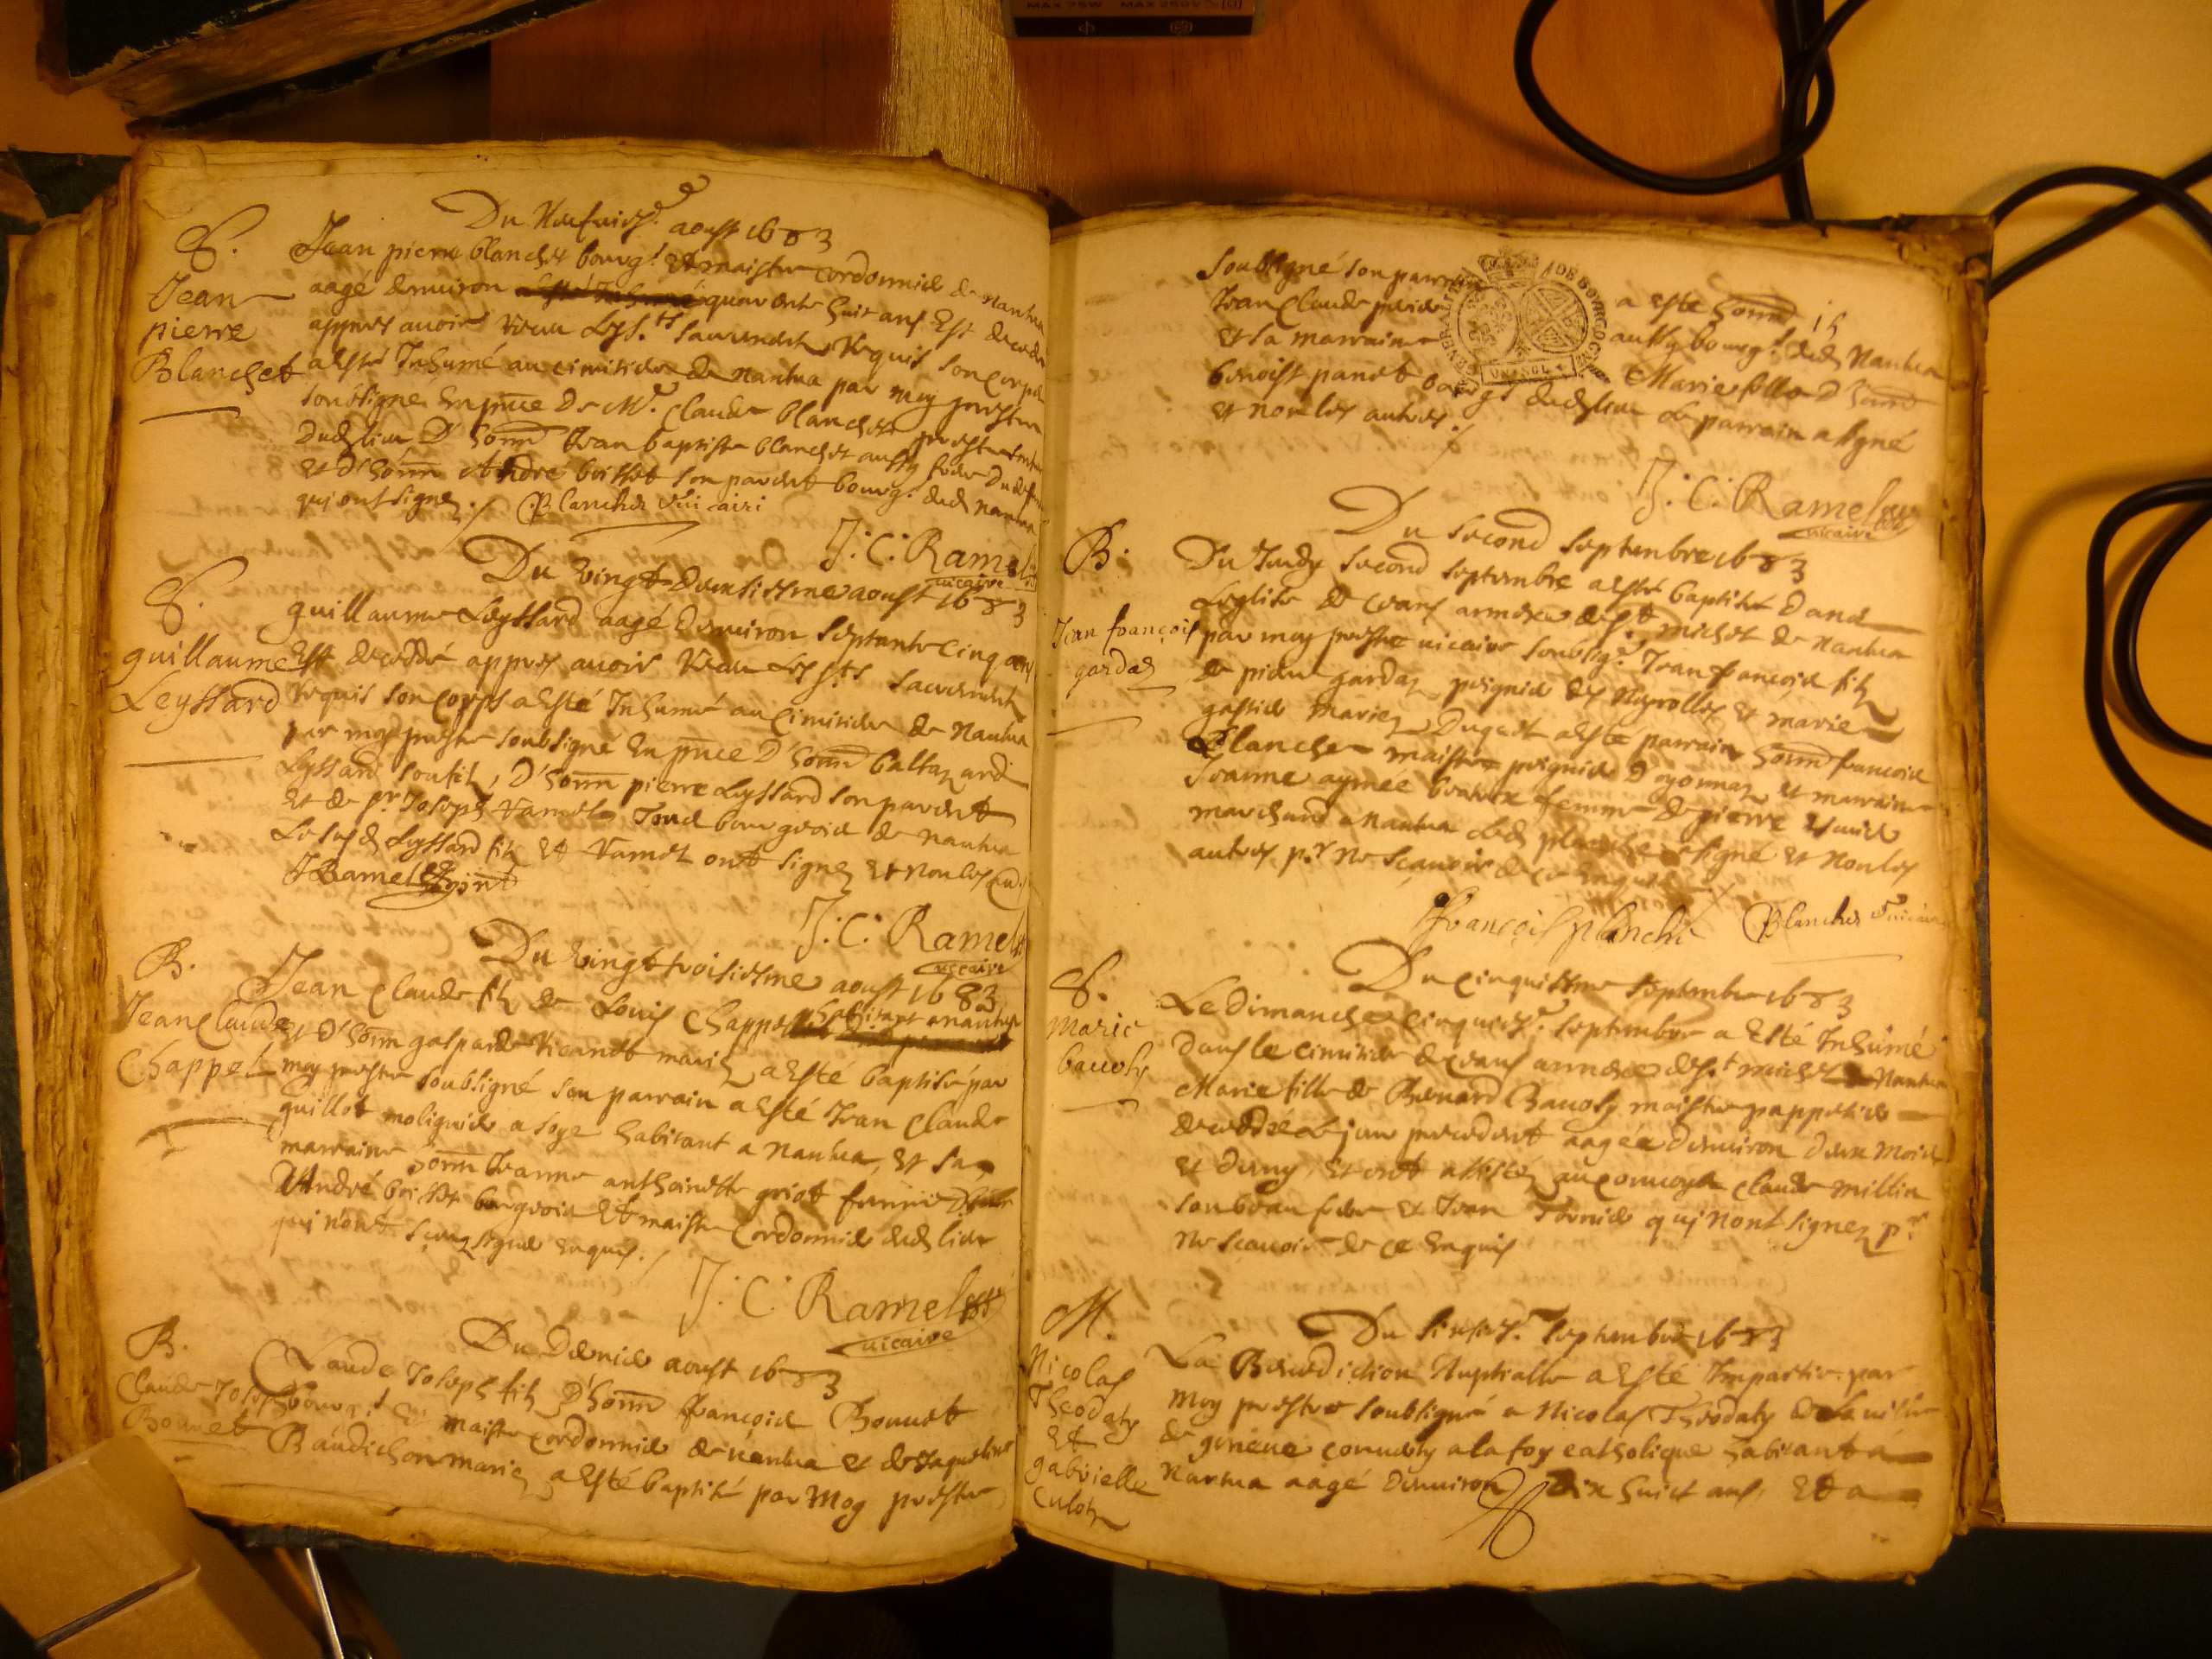 MAX 75W MAX 250V
Du Neufuies.e aoust 1683
S.
Jean
pierre
Blanchet
Jean pierre blanchet bourg.s Et maistre cordonnier de nantua
aagé denuiron quarante huit ans Est decedé
appres auoir receu Les S.ts sacrements requis son corps
a Esté Inhumé au cimitiere de nantua par moy prestre
soubsigne En pnce De M.re Claude blanchet prestre
dud lieu D' honn Jean baptiste blanchet aussy frere Du
Et D' honn André boisset son parent bourg.s dud nantua
qui ont signez ./ Blanchet
J: C: Ramel
vicaire
Du vingt Deuxiesme aoust 1683
S.
guillaume
Leyssard
guillaume Leyssard aagé denuiron septante cinq ans
Est decedé appres auoir receu Les S.ts sacrements
requis son corps a Esté Inhumé au cimitiere de Nantua
par moy prestre soubsigné En pnce D' honn baltazard
Leyssard son filz, D' honn pierre Leyssard son parent
Et de s.r Joseph Vamet Tous bourgeois de nantua
Les susd Leyssard filz Et Vamet ont signez Et non les
J: C: Ramel
vicaire
Du vingt troisiesme aoust 1683
B.
Jean Claude
Chappel
Jean Claude filz de Louis Chappel habitant a nantua
Et D' honn gasparde mariez a Esté baptisé par
moy prestre soubsigné son parrain a Esté Jean Claude
guillot habitant a Nantua, Et sa
marraine honn Jeanne anthoinette femme
André boisset bourgeois Et maistre Cordonnier dud lieu
qui n'ont signer Enquis ./
J: C: Ramel
vicaire
Du Dernier aoust 1683
B.
Claude Joseph
Bonnet
Claude Joseph filz D' honn françois Bonnet
bourg.s Et maistre cordonnier de nantua Et de Jaqueline
Baudichon mariez a Esté baptisé par Moy prestre
soubsigné son parrain a Este honn
Jean Claude aussy bourg.s dud Nantua
Et sa marraine Marie fille D' honn
benoist bourg.s dud lieu Le parrain a signé
Et non les autres ./
J: C: Ramel
vicaire
Du second septembre 1683
B.
Jean françois
gardaz
Du Jeudy second septembre a Esté baptisé dans
L'eglise de ceans annexe de S.t michel de Nantua
par moy prestre vicaire soubsig.é Jean francois filz
de pierre gardaz peignier des Neyrolles Et marie
gassier mariez Duquel a Esté parrain honn francois
Planche maistre peignier D'oyonnaz Et marraine
Jeanne aymée femme de pierre
marchand a Nantua Led planche a signé Et Non les
autres p.r Ne scauoir de ce Enquis
francois planche Blanchet
Du cinquiesme septembre 1683
S.
Marie
Le Dimanche cinquies.e septembre a Esté Inhumé
dans le cimitiere de ceans annexe de S.t michel de Nantua
Marie fille de Bernard maistre pappetier
decedée Le jour precedent aagée denuiron deux mois
Et demy, Et ont assistéz au conuoy Claude millin
son beau frere Et Jean qui n'ont signez p.r
Ne scauoir de ce Enquis
Du sixies.e septembre 1683
M.
Nicolas
Theodaty
Et
gabrielle
Culoty
La Benediction Nuptialle a Esté Impartie par
Moy prestre soubsigné a Nicolas Theodaty de La uille
de geneue conuerty a la foy catholique habitant a
Nantua aagé denuiron Dix huict ans, Et a